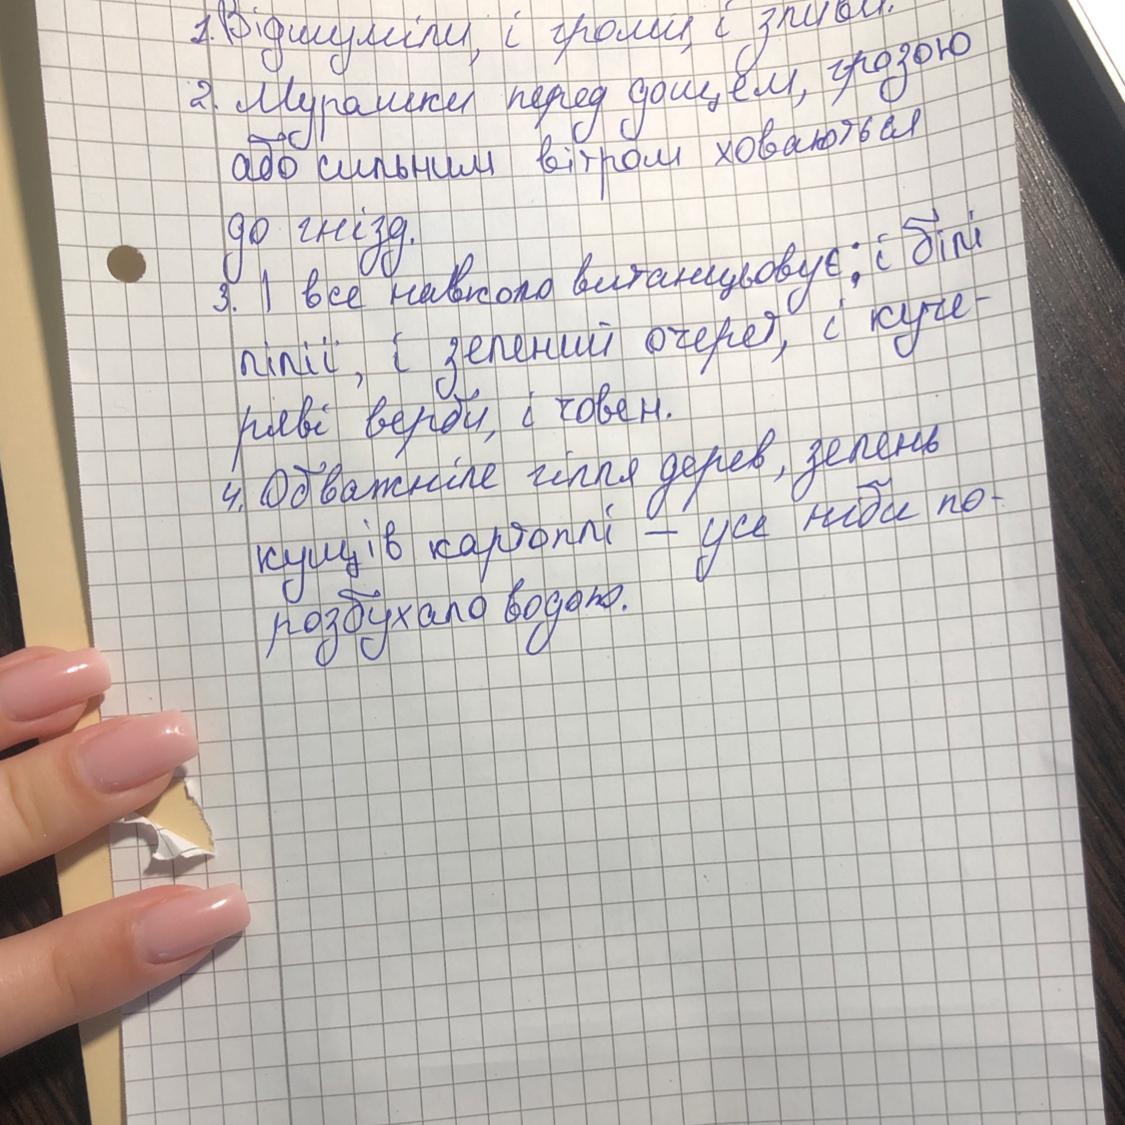 1. Відшуміли, і громи, і зливи.
2. Мурашки перед дощем, грозою
або сильним вітром ховаються
до гнізд.
3. І все навколо витанцьовує: і білі
лілії, і зелений очерет, і куче-
ряві верби, і човен.
4. Обважніле гілля дерев, зелень
кущів картоплі — усе ніби по-
розбухало водою.